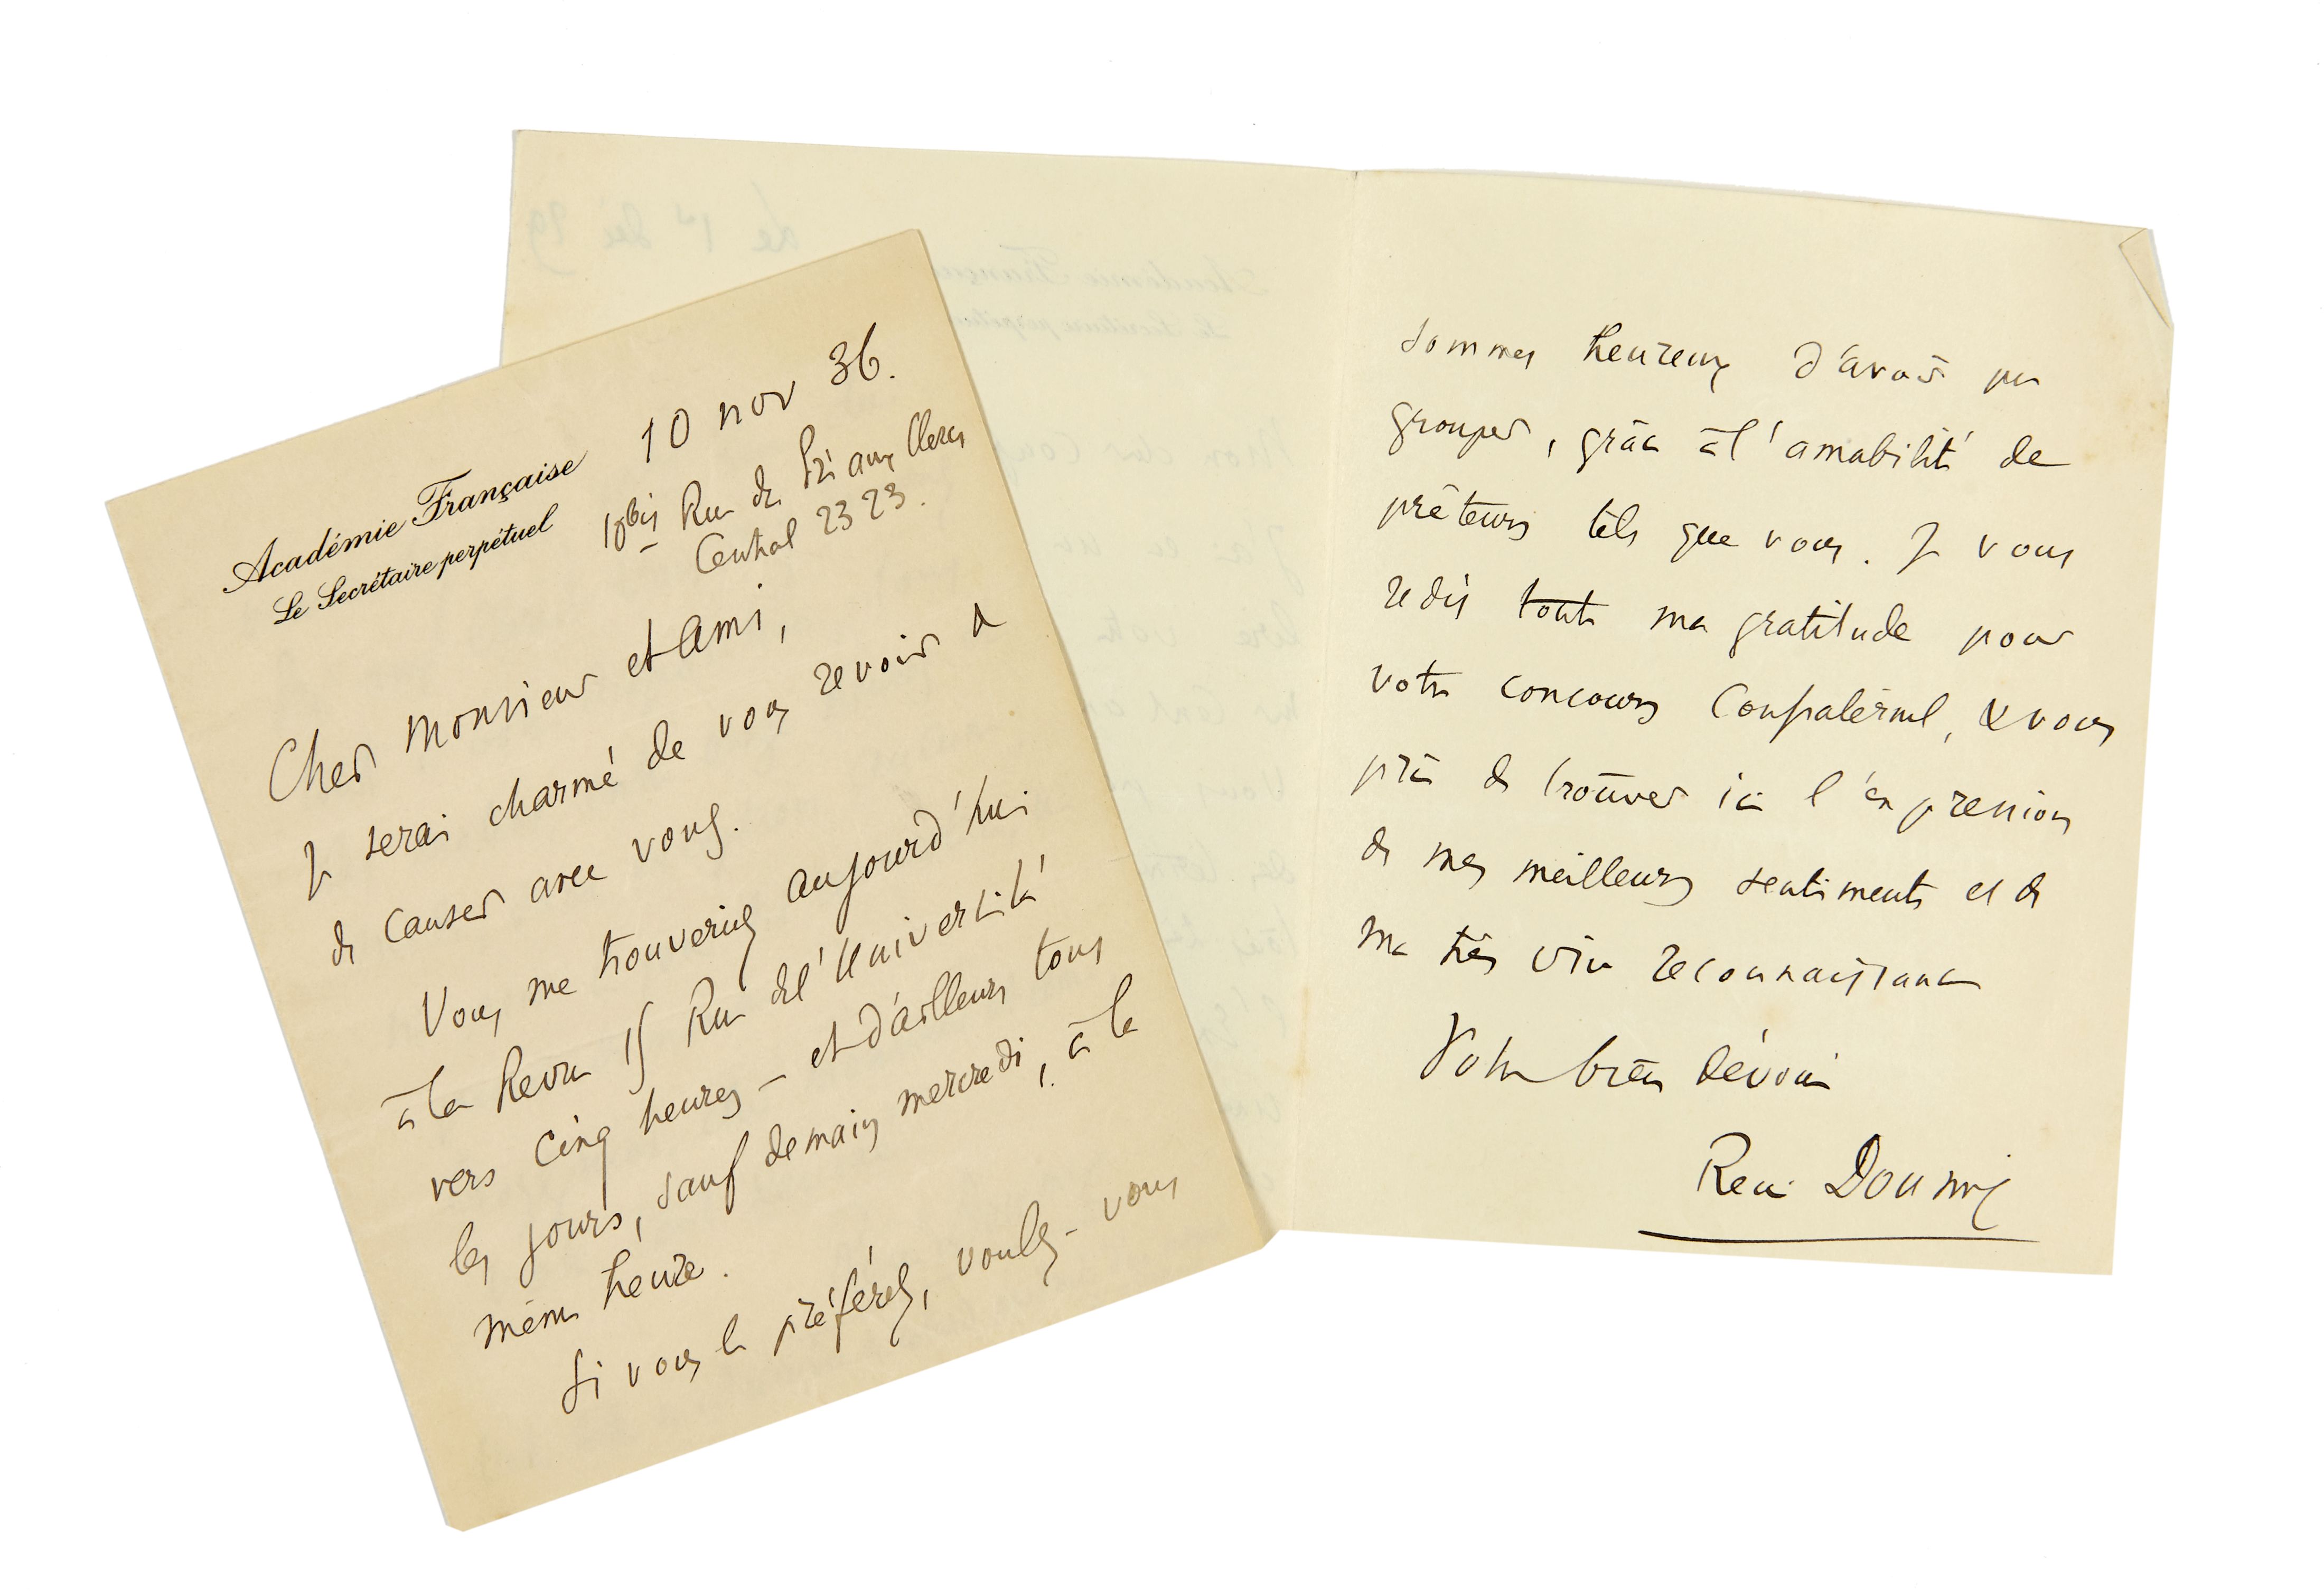 Académie Française
Le Secrétaire perpétuel
10 nov 36.
Rue du Pré aux Clercs
Central 23 23.
Cher Monsieur et Ami,
Je serai charmé de vous revoir &
de causer avec vous.
Vous me trouveriez aujourd'hui
à la Revue 15 Rue de l'Université
vers cinq heures – et d'ailleurs tous
les jours, sauf demain mercredi, à la
même heure.
Si vous le préférez, voulez-vous
sommes heureux d'avoir pu
grouper, grâce à l'amabilité de
prêteurs tels que vous. Je vous
redis toute ma gratitude pour
votre concours &vous
prie de trouver ici l'expression
de mes meilleurs sentiments et de
ma très vive reconnaissance
Votre bien dévoué
René Doumic